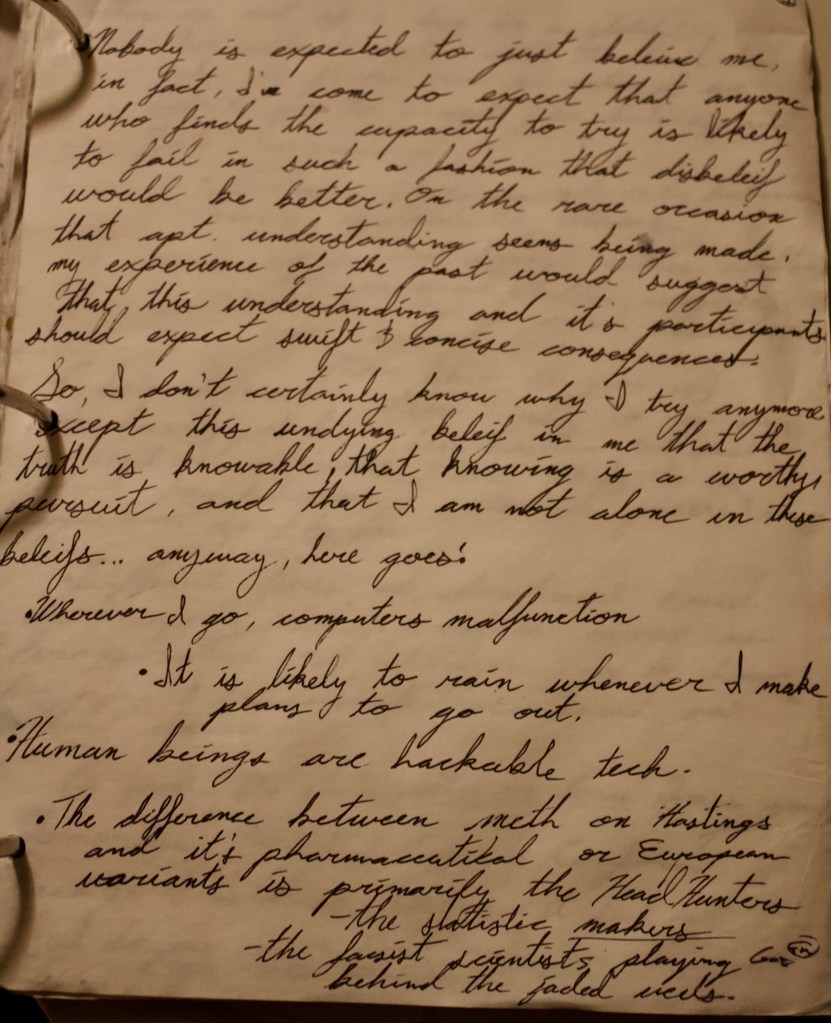 Nobody is expected to just beleive me,
in fact, I've come to expect that anyone
who finds the capacity to try is likely
to fail in such a fashion that disbeleif
would be better. On the rare occasion
that apt. understanding seems being made,
my experience of the past would suggest
that, this understanding and it's participants
should expect swift & concise consequences.
So, I don't certainly know why I try anymore
except this undying beleif in me that the
truth is knowable, that knowing is a worthy
pursuit, and that I am not alone in these
beleifs... anyway, here goes:
•Wherever I go, computers malfunction
•It is likely to rain whenever I make
plans to go out.
•Human beings are hackable tech.
•The difference between meth on Hastings
and it's pharmaceutikal or European
variants is primarily the Head Hunters
-the statistic makers
-the facsist scientists playing
behind the jaded veils.